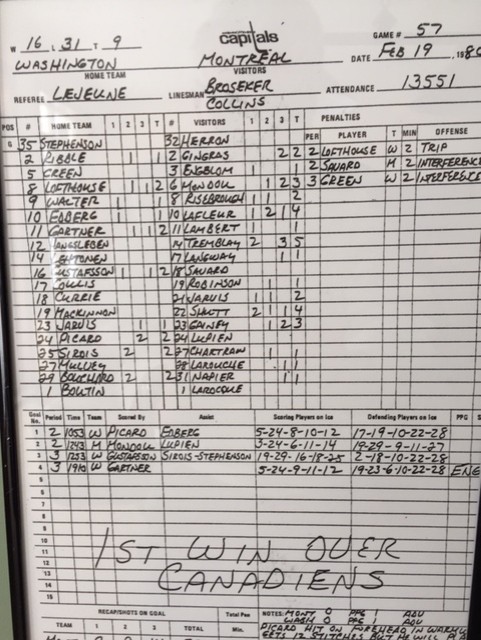 capitals
GAME # 57
W 16 L 31 T 9
WASHINGTON
HOME TEAM
MONTREAL
VISITORS
DATE FEB 19, 1980
REFEREE LEJEUNE
LINESMAN BROSEKER
COLLINS
ATTENDANCE 13551
POS # HOME TEAM 1 2 3 T # VISITORS 1 2 3 T PENALTIES
PER PLAYER T MIN OFFENSE
G 35 STEPHENSON 32 HERRON
2 RIBBLE 1 1 2 GINGRAS 2 2 2 LOFTHOUSE W 2 TRIP
5 GREEN 3 ENGBLOM 2 SAVARD M 2 INTERFERENCE
8 LOFTHOUSE 1 1 2 6 MONDOU 1 2 3 3 GREEN W 2 INTERFERENCE
9 WALTER 1 1 8 RISEBROUGH 1 1 2
10 EDBERG 1 1 10 LAFLEUR 1 2 1 4
11 GARTNER 1 1 2 11 LAMBERT 1 1
12 HANGSLEBEN 14 TREMBLAY 2 3 5
14 LEHTONEN 17 LANGWAY 1 1
16 GUSTAFSSON 1 1 2 18 SAVARD
17 COLLIS 19 ROBINSON 1 1
18 CURRIE 21 JARVIS 1 1 2
19 MACKINNON 22 SHUTT 2 1 1 4
23 JARVIS 1 1 23 GAINEY 1 2 3
24 PICARD 2 2 24 LUPIEN
25 SIROIS 2 2 27 CHARTRAW 1 1
27 MULVEY 28 LAROUCHE 1 1
29 BOUCHARD 2 2 31 NAPIER 1 1
1 BOUTIN 1 LAROCQUE
Goal No. Period Time Team Scored By Assist Scoring Players on Ice Defending Players on Ice PPG S
1 2 1053 W PICARD EDBERG 5-24-8-10-12 17-19-10-22-28
2 2 1243 M MONDOU LUPIEN 3-24-6-11-14 19-29-9-11-27
3 3 1253 W GUSTAFSSON SIROIS-STEPHENSON 19-29-16-18-25 2-18-10-22-28
4 3 1910 W GARTNER 5-24-9-11-12 19-23-6-10-22-28 ENG
5
6
7
8
9
10
11
12
13
14
15
1ST WIN OVER
CANADIENS
RECAP/SHOTS ON GOAL
TEAM 1 2 3 TOTAL
Total Pen
Min.
NOTES: MONT 0 PPG 1 ADV
WASH 0 PPG 1 ADV
PICARD HIT ON FOREHEAD IN WARMUP
GETS 12 STITCHES BUT HE WILL PLAY